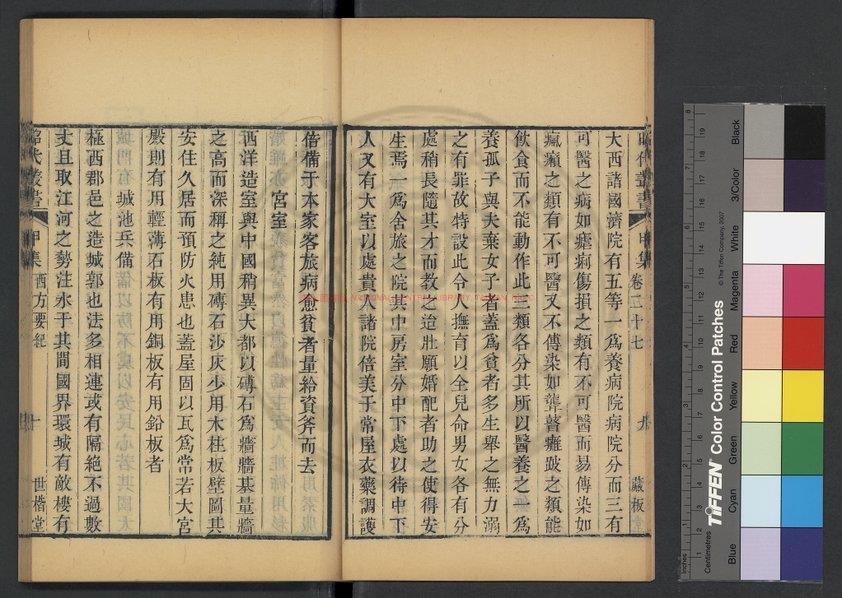 昭代叢書 甲集 卷二十七 九 藏板
大西諸國濟院有五等一爲養病院病院分而三有
可醫之病如瘧痢傷損之類有不可醫而易傳染如
瘋癩之類有不可醫又不傳染如聾瞽癱跛之類能
飲食而不能動作此三類各分其所以醫養之一爲
養孤子與夫棄女子者蓋爲貧者多生舉之無力溺
之有罪故特設此令人撫育以全兒命男女各有分
處稍長隨其才而敎之迨壯願婚配者助之使得安
生焉一爲舍旅之院其中房室分中下處以待中下
人又有大室以處貴人諸院倍美于常屋衣藥調護
偕備于本家客旅病愈貧者量給資斧而去
宮室
西洋造室與中國稍異大都以磚石爲牆牆基量牆
之高而深稱之純用磚石沙灰少用木柱板壁圖其
安住久居而預防火患也蓋屋固以瓦爲常若大宮
殿則有用輕薄石板有用銅板有用鉛板者
城池兵備
極西郡邑之造城郭也法多相連或有隔絕不過數
丈且取江河之勢注水于其間國界環城有敵樓有
昭代叢書 甲集 西方要紀 十 世楷堂
TIFFEN Color Control Patches
© The Tiffen Company, 2007
Blue Cyan Green Yellow Red Magenta White 3/Color Black
Inches
Centimetres